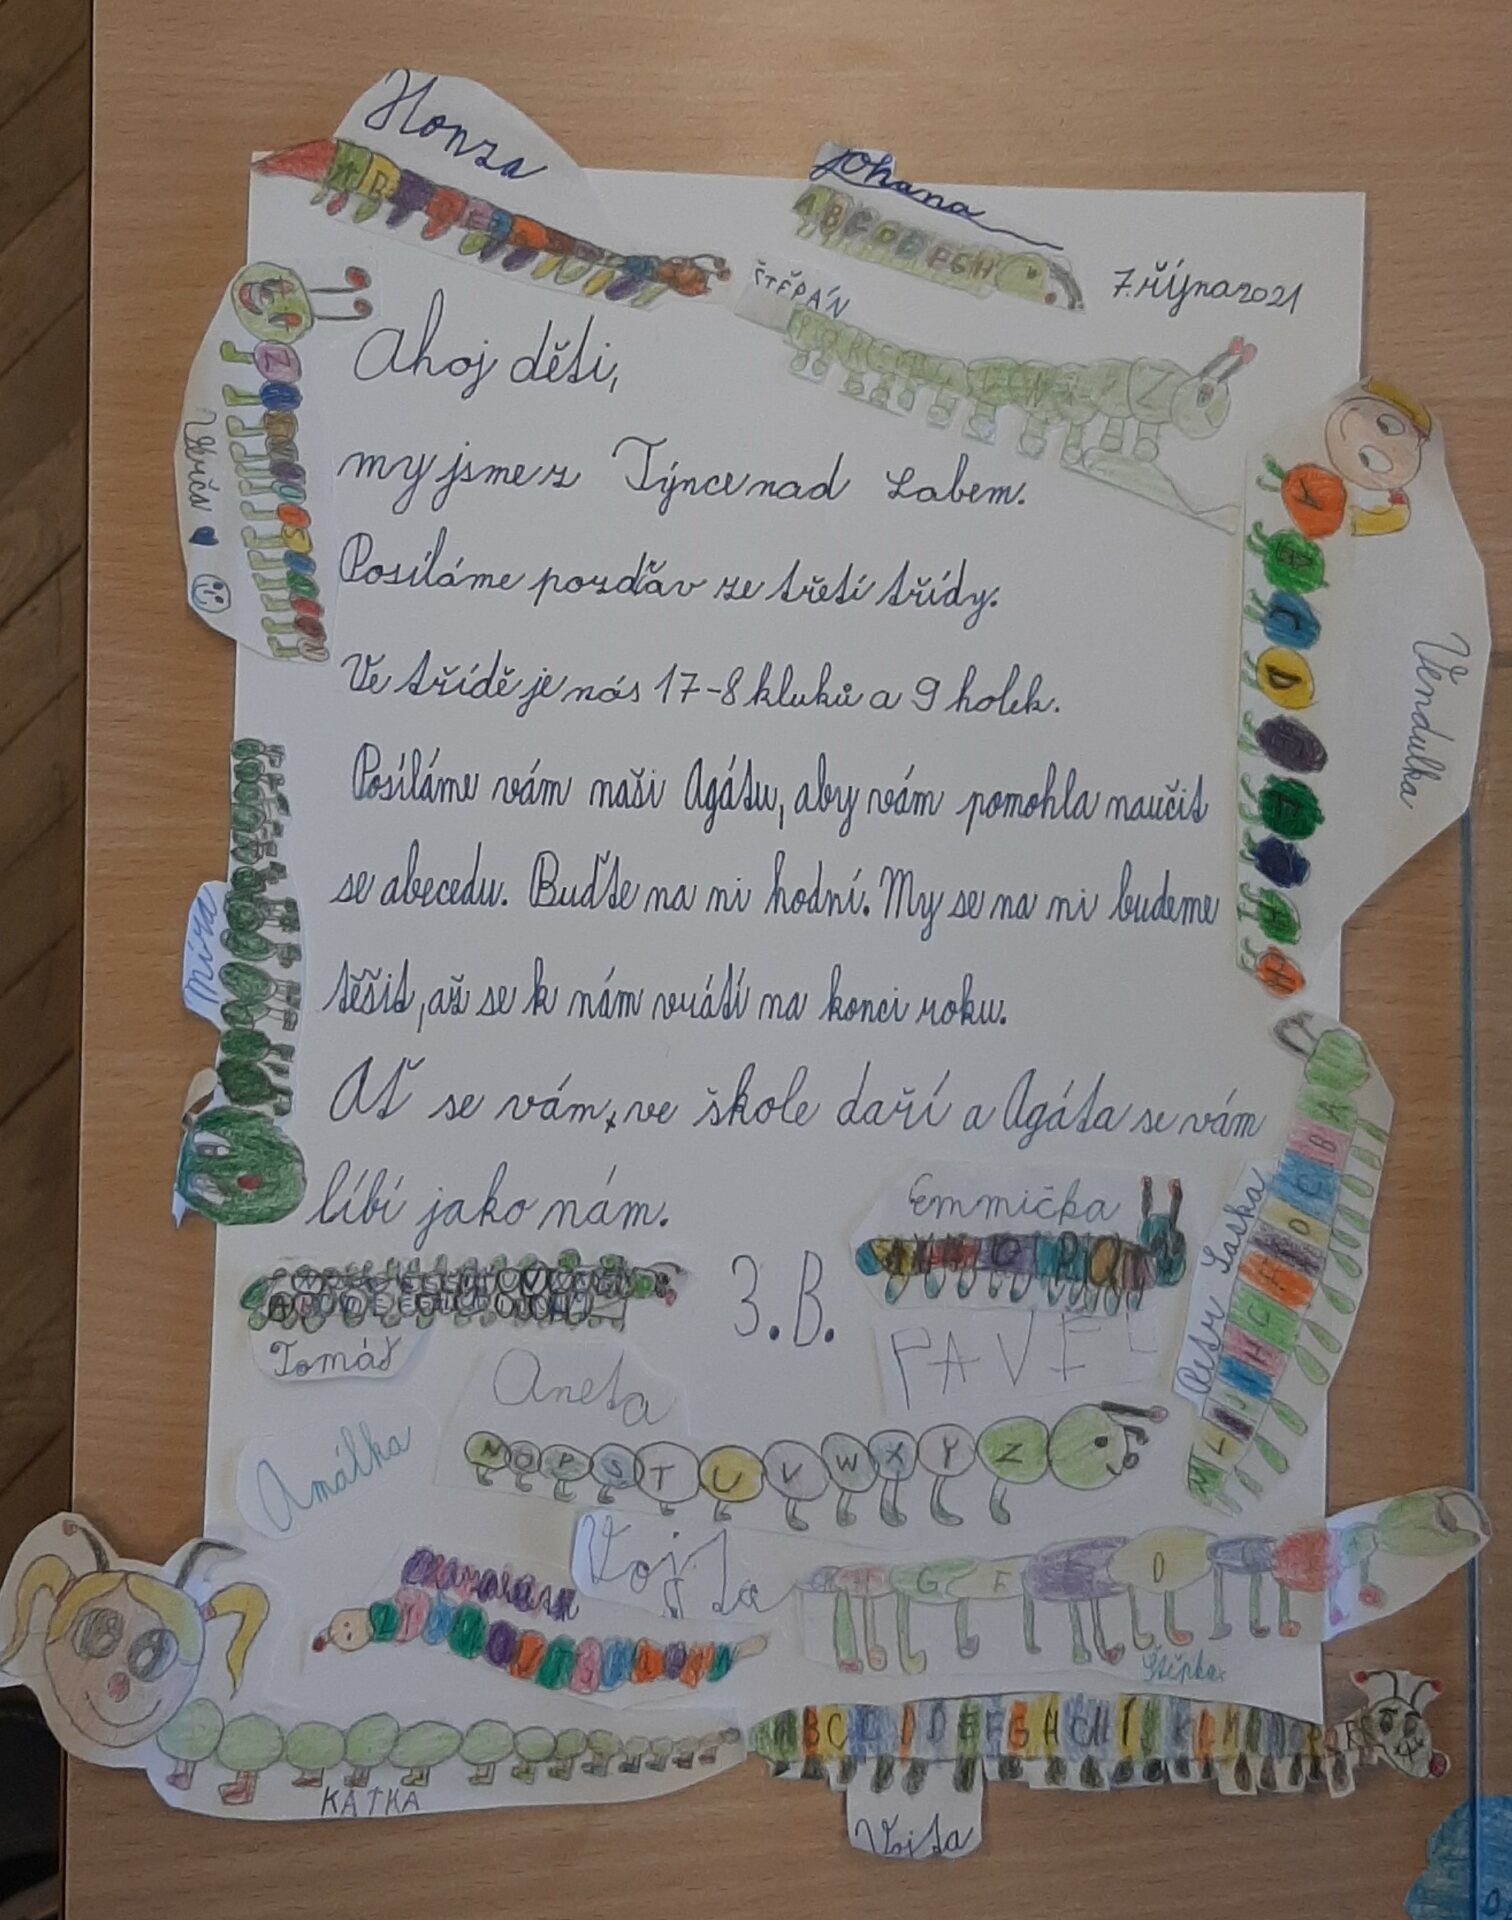 Honza
Johana
7. října 2021
ŠTĚPÁN
A B C D E F G H
Ahoj děti,
my jsme z Týnce nad Labem.
Posíláme pozdŕav ze třetí třídy.
Ve třídě je nás 17-8 kluků a 9 holek.
Posíláme vám naši Agátu, aby vám pomohla naučit
se abecedu. Buďte na ni hodní. My se na ni budeme
těšit, až se k nám vrátí na konci roku.
Ať se vám, ve škole daří a Agáta se vám
líbí jako nám.
Vendulka
A B C D E F G H CH
Míra
Emmička
3. B.
Petr Laska
Tomáš
PAVEL
Aneta
N O P S T U V W X Y Z
Amálka
Vojta
G F E D
Štěpka
KATKA
Vojta